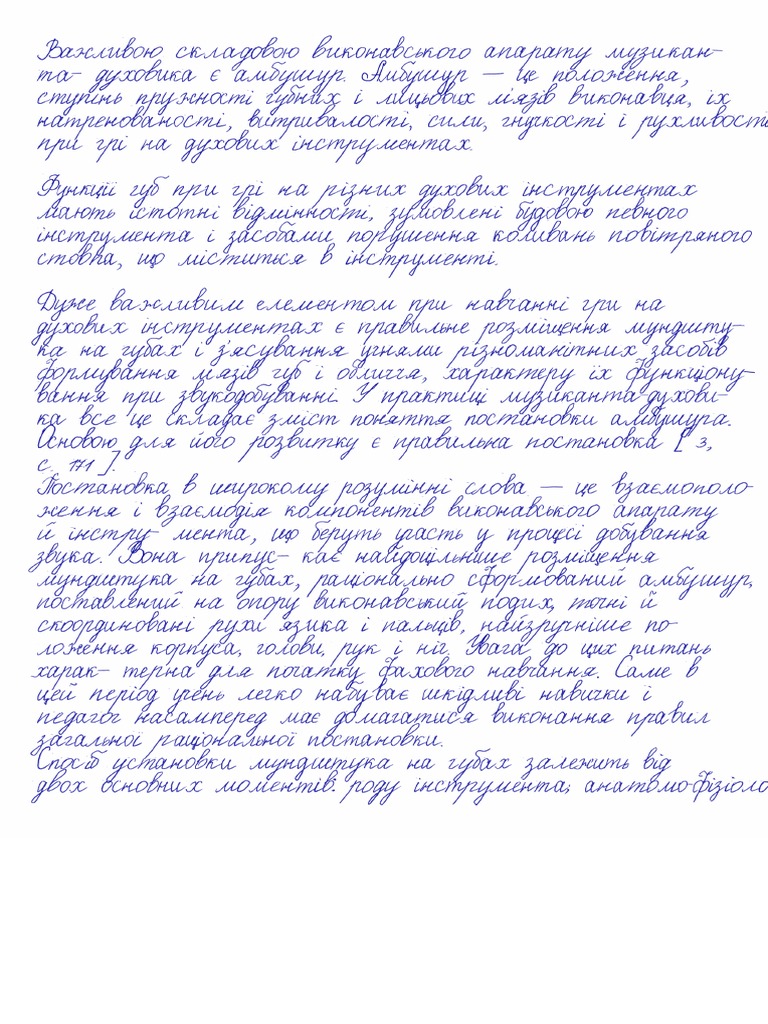 Важливою складовою виконавського апарату музикан-
та- духовика є амбушур. Амбушур — це положення,
ступінь пружності губних і лицьових м'язів виконавця, їх
натренованості, витривалості, сили, гнучкості і рухливост
при грі на духових інструментах.
Функції губ при грі на різних духових інструментах
мають істотні відмінності, зумовлені будовою певного
інструмента і засобами порушення коливань повітряного
стовпа, що міститься в інструменті.
Дуже важливим елементом при навчанні гри на
духових інструментах є правильне розміщення мундшту-
ка на губах і з'ясування учнями різноманітних засобів
формування м'язів губ і обличчя, характеру їх функціону-
вання при звукодобуванні. У практиці музиканта-духови-
ка все це складає зміст поняття постановки амбушура.
Основою для його розвитку є правильна постановка [ 3,
с. 171 ].
Постановка в широкому розумінні слова — це взаємополо-
ження і взаємодія компонентів виконавського апарату
й інстру- мента, що беруть участь у процесі добування
звука. Вона припус- кає найдоцільніше розміщення
мундштука на губах, раціонально сформований амбушур,
поставлений на опору виконавський подих, точні й
скоординовані рухи язика і пальців, найзручніше по-
ложення корпуса, голови, рук і ніг. Увага до цих питань
харак- терна для початку фахового навчання. Саме в
цей період учень легко набуває шкідливі навички і
педагог насамперед має домагатися виконання правил
загальної раціональної постановки.
Спосіб установки мундштука на губах залежить від
двох основних моментів: роду інструмента; анатомо-фізіоло